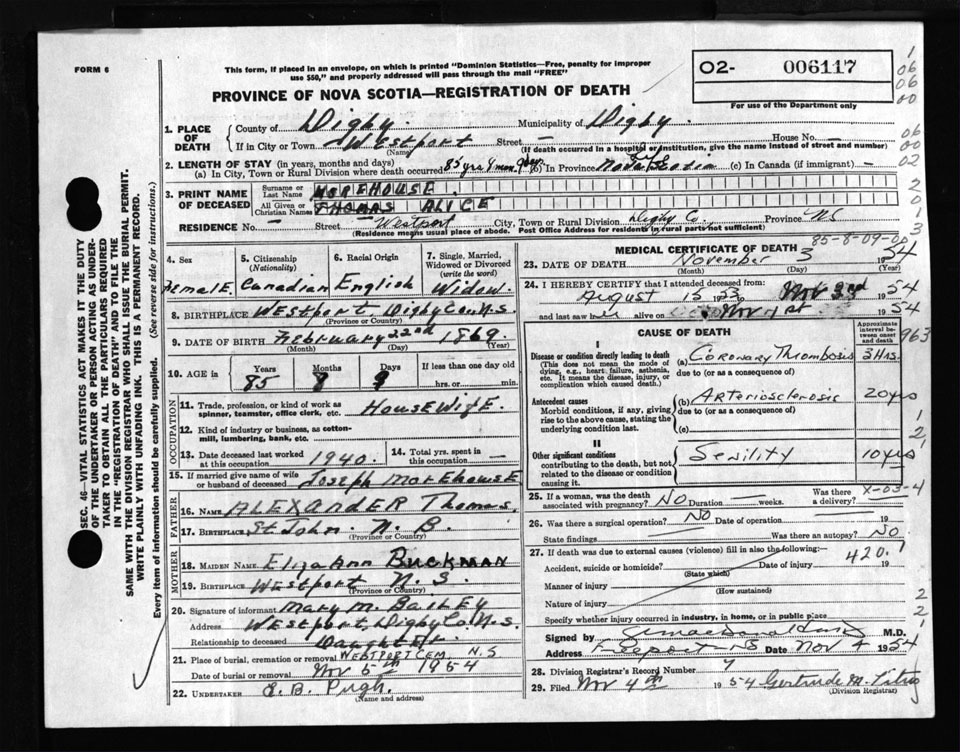 FORM 6
This form, if placed in an envelope, on which is printed "Dominion Statistics—Free, penalty for improper
use $50," and properly addressed will pass through the mail "FREE"
02- 006117
For use of the Department only
PROVINCE OF NOVA SCOTIA—REGISTRATION OF DEATH
SEC. 46—VITAL STATISTICS ACT MAKES IT THE DUTY
OF THE UNDERTAKER OR PERSON ACTING AS UNDER-
TAKER TO OBTAIN ALL THE PARTICULARS REQUIRED
IN THE "REGISTRATION OF DEATH" AND TO FILE THE
SAME WITH THE DIVISION REGISTRAR WHO SHALL ISSUE THE BURIAL PERMIT.
WRITE PLAINLY WITH UNFADING INK. THIS IS A PERMANENT RECORD.
Every item of information should be carefully supplied. (See reverse side for instructions.)
1. PLACE OF DEATH
County of Digby Municipality of Digby
If in City or Town Westport Street — House No. —
(Name) (If death occurred in a hospital or institution, give the name instead of street and number)
2. LENGTH OF STAY (in years, months and days)
(a) In City, Town or Rural Division where death occurred 85 yrs 8 mon 9 days (b) In Province Nova Scotia (c) In Canada (if immigrant) —
3. PRINT NAME OF DECEASED
Surname or Last Name MOREHOUSE
All Given or Christian Names THOMAS ALICE
RESIDENCE No. — Street Westport City, Town or Rural Division Digby Co. Province NS
(Residence means usual place of abode. Post Office Address for residents in rural parts not sufficient)
4. Sex Female
5. Citizenship (Nationality) Canadian
6. Racial Origin English
7. Single, Married, Widowed or Divorced (write the word) Widow
8. BIRTHPLACE Westport, Digby Co. N.S.
(Province or Country)
9. DATE OF BIRTH February 2nd 1869
(Month) (Day) (Year)
10. AGE in Years Months Days If less than one day old
85 8 9 hrs. or min.
OCCUPATION
11. Trade, profession, or kind of work as spinner, teamster, office clerk, etc. Housewife
12. Kind of industry or business, as cotton-mill, lumbering, bank, etc.
13. Date deceased last worked at this occupation 1940 14. Total yrs. spent in this occupation —
15. If married give name of wife or husband of deceased Joseph Morehouse
FATHER
16. NAME Alexander Thomas
17. BIRTHPLACE St John N.B.
(Province or Country)
MOTHER
18. MAIDEN NAME Eliza Ann Buckman
19. BIRTHPLACE Westport N.S.
(Province or Country)
20. Signature of informant Mary M. Bailey
Address Westport, Digby Co. N.S.
Relationship to deceased Daughter
21. Place of burial, cremation or removal WESTPORT CEM. N.S
Date of burial or removal Nov 5th 1954
22. UNDERTAKER E. B. Pugh.
(Name and address)
85-8-09-00
MEDICAL CERTIFICATE OF DEATH
23. DATE OF DEATH November 3 1954
(Month) (Day) (Year)
24. I HEREBY CERTIFY that I attended deceased from:
August 15 1953 to Nov 3rd 1954
and last saw her alive on Nov 1st 1954
CAUSE OF DEATH
Approximate interval between onset and death
I
Disease or condition directly leading to death
(This does not mean the mode of dying, e.g., heart failure, asthenia, etc. It means the disease, injury, or complication which caused death.)
(a) Coronary Thrombosis 3 Hrs.
due to (or as a consequence of)
Antecedent causes
Morbid conditions, if any, giving rise to the above cause, stating the underlying condition last.
(b) Arteriosclerosis 20 yrs
due to (or as a consequence of)
(c)
II
Other significant conditions contributing to the death, but not related to the disease or condition causing it.
Senility 10 yrs
25. If a woman, was the death associated with pregnancy? NO Duration — weeks. Was there a delivery?
X-03-4
26. Was there a surgical operation? NO Date of operation 19
State findings Was there an autopsy? NO
27. If death was due to external causes (violence) fill in also the following:—
420.1
Accident, suicide or homicide? Date of injury 19
(State which)
Manner of injury
(How sustained)
Nature of injury
Specify whether injury occurred in industry, in home, or in public place
Signed by M.D.
Address Freeport NS Date Nov 4 1954
28. Division Registrar's Record Number 7
29. Filed Nov 4th 1954 Gertrude M. Titus
(Division Registrar)